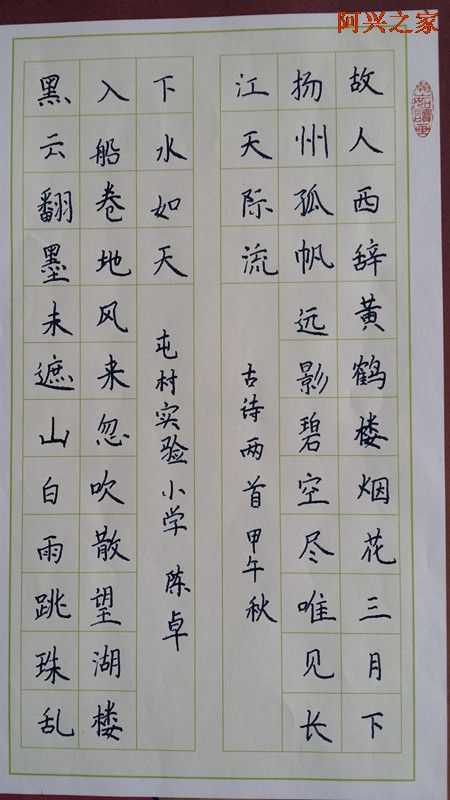 阿兴之家
故人西辞黄鹤楼烟花三月下
扬州孤帆远影碧空尽唯见长
江天际流
古诗两首 甲午秋
黑云翻墨未遮山白雨跳珠乱
入船卷地风来忽吹散望湖楼
下水如天
屯村实验小学 陈卓